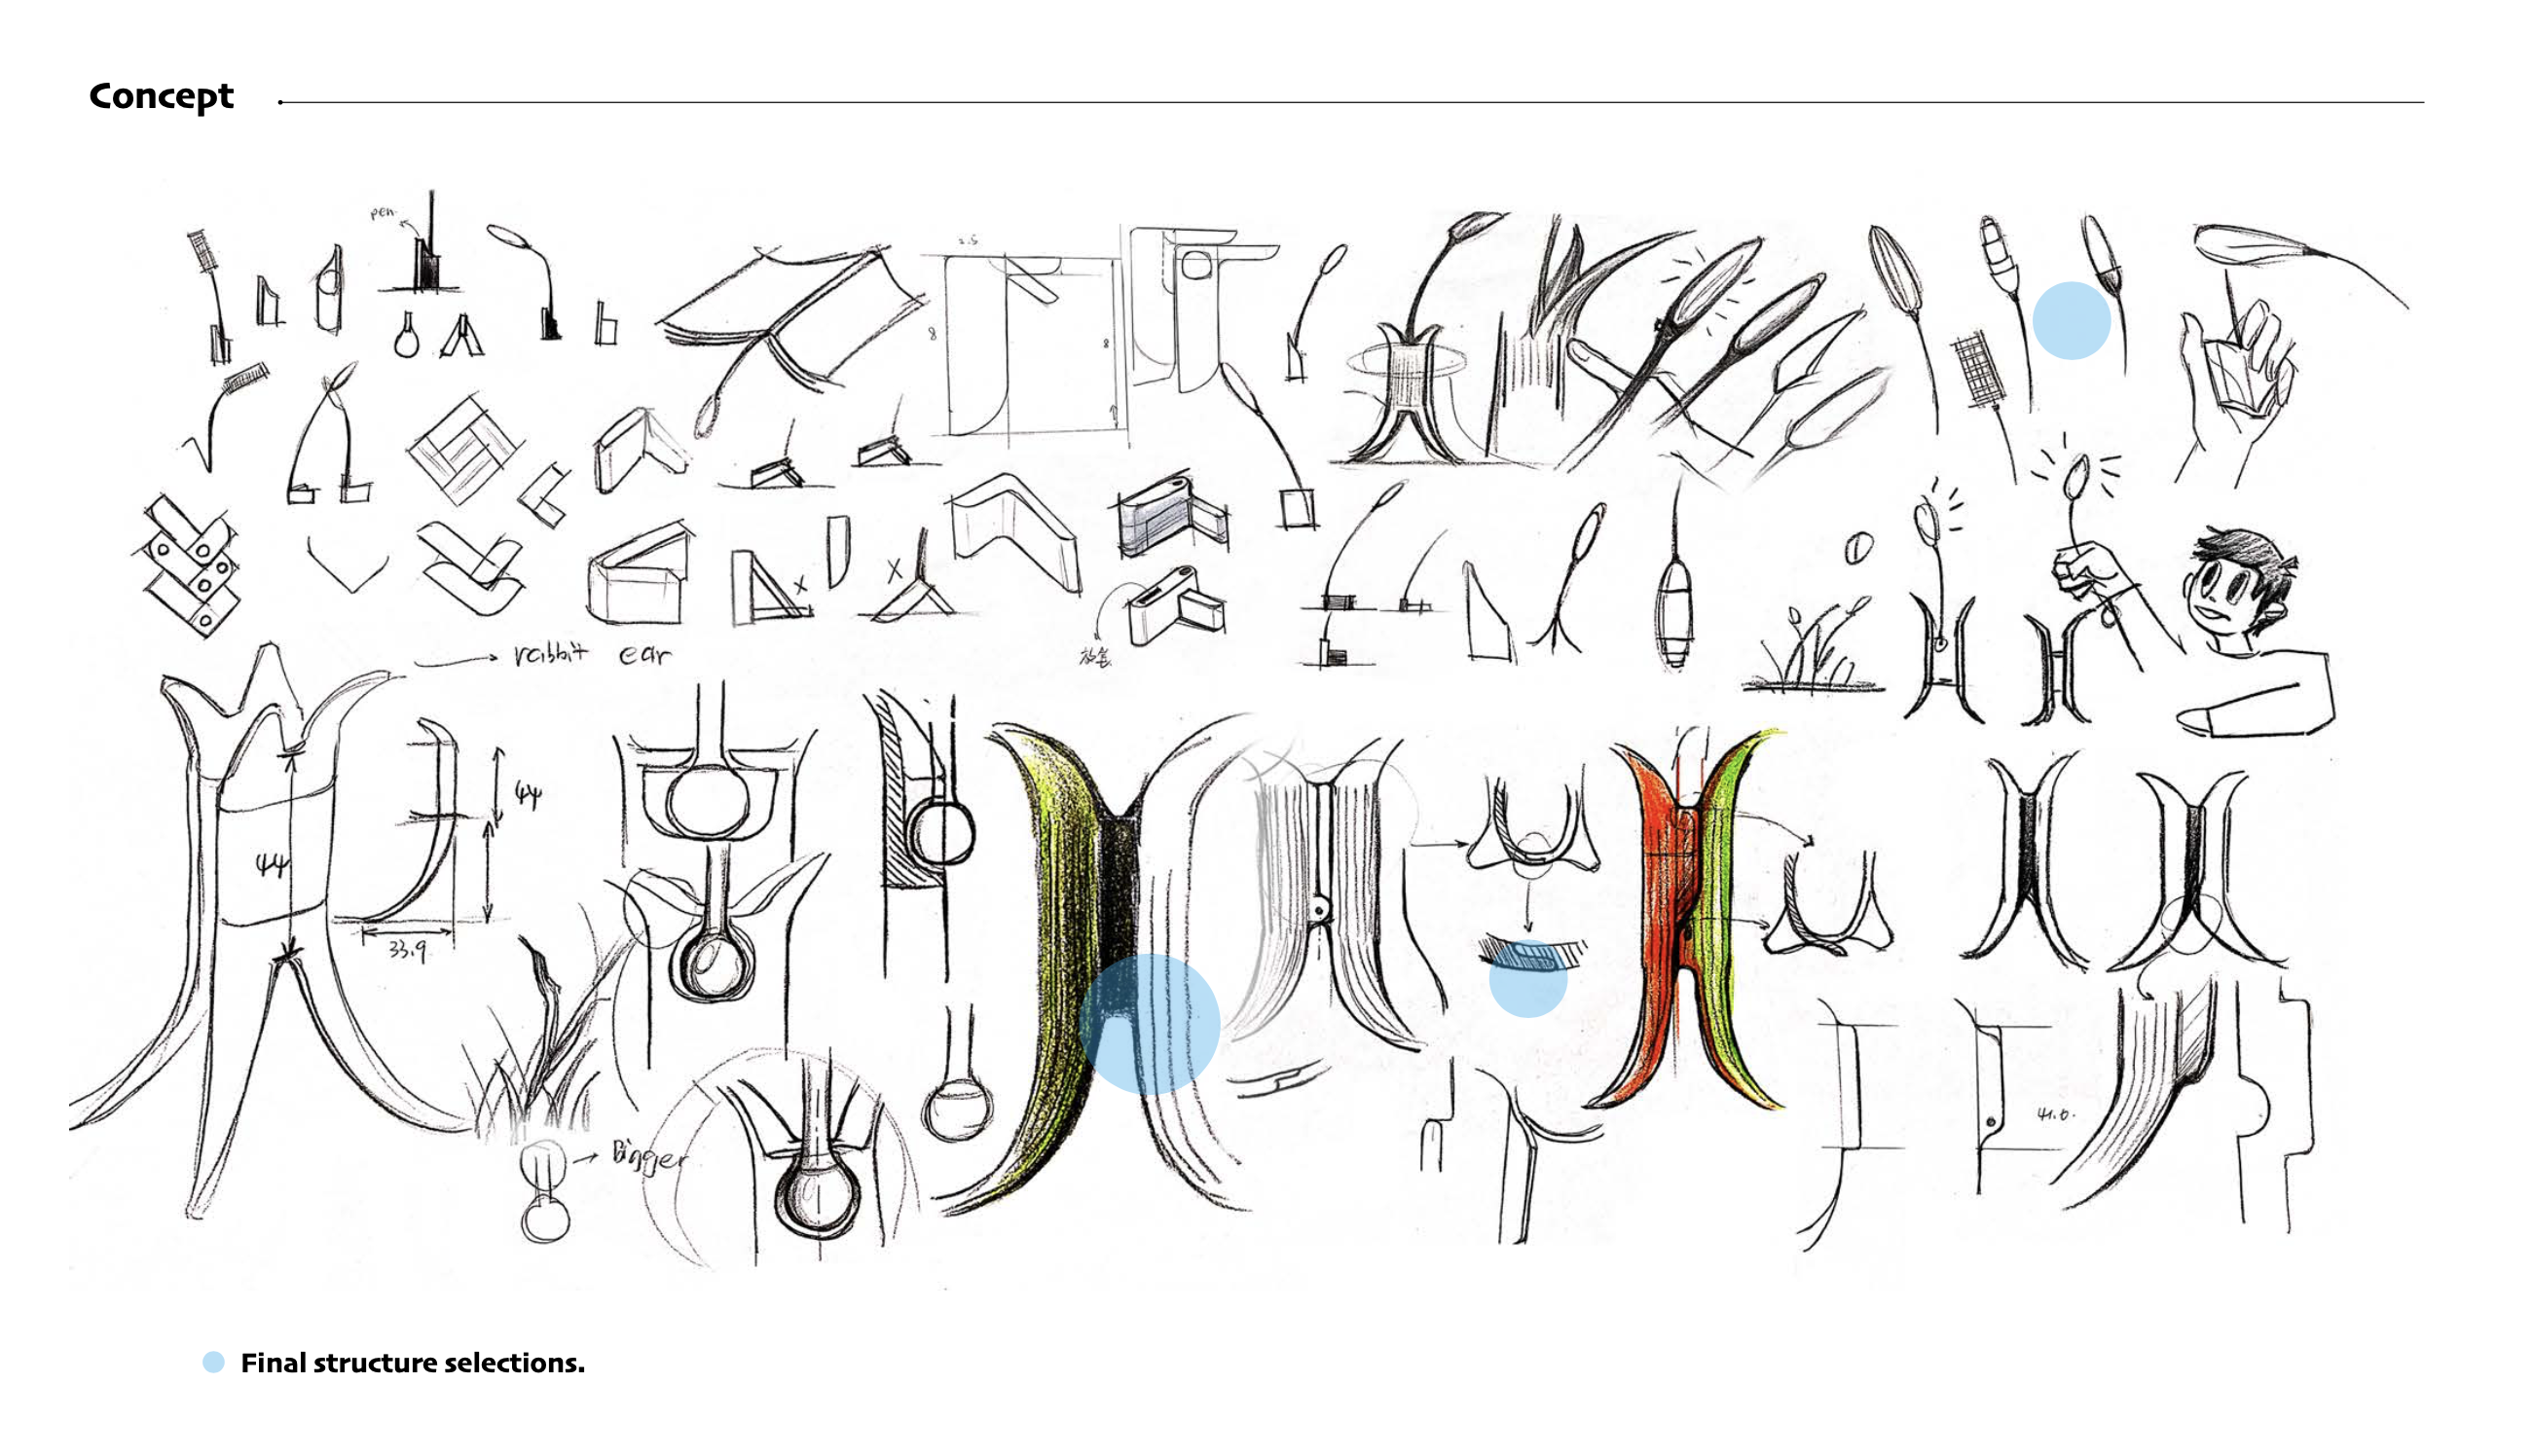 Concept
pen
2.5
8
8
rabbit ear
放笔
44
44
33.9
Bigger
41.6.
Final structure selections.